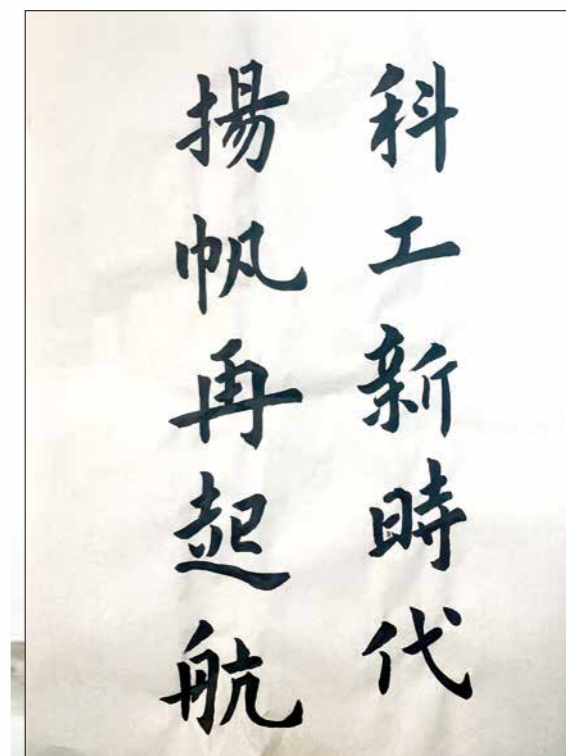 科工新時代
揚帆再起航